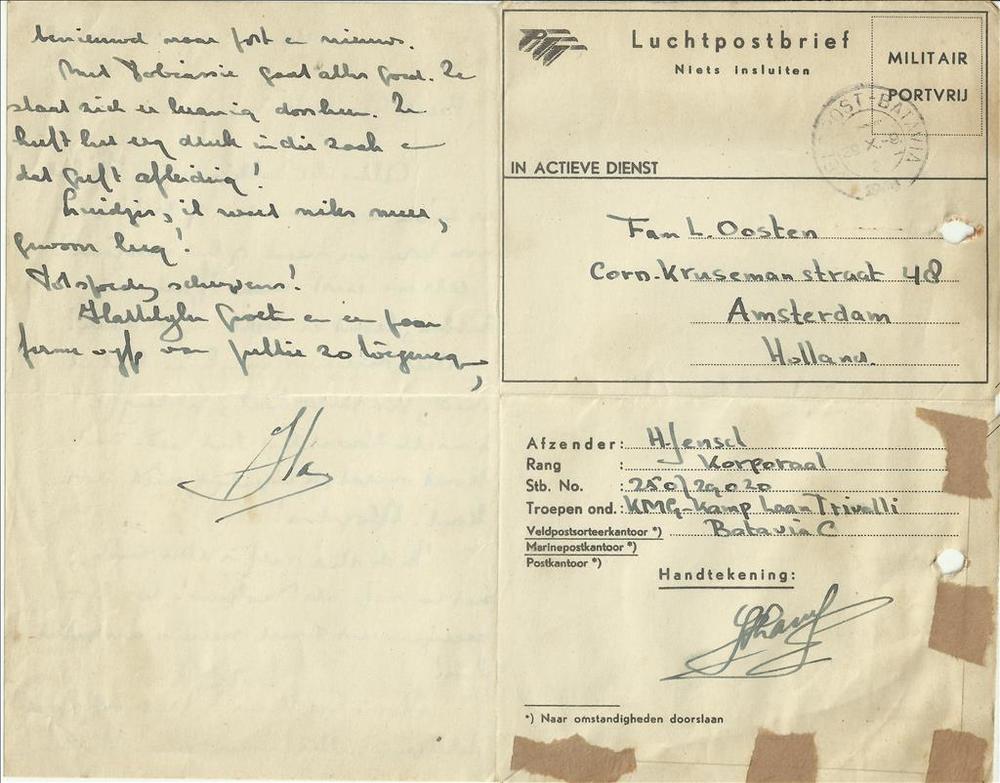 benieuwd naar post en nieuws.
Met Tobiassie gaat alles goed. Ze
slaat zich er kranig doorheen. Ze
heeft het erg druk in die zaak en
dat geeft afleiding!
Luidjes, ik weet niks meer,
gewoon leeg!
Tot spoedig schrijvens!
Hartelijke Groeten en een paar
ferme van jullie zo toegenegen,
Ha
PTT
Luchtpostbrief
Niets insluiten
MILITAIR
PORTVRIJ
POST-BATAVIA
IN ACTIEVE DIENST
Fam L. Oosten
Corn-Krusemanstraat 48
Amsterdam
Holland.
Afzender: H. Jensel
Rang : Korporaal
Stb. No. : 250729020
Troepen ond.: KMG-Kamp Laan Trivelli
Veldpostsorteerkantoor *) Batavia C
Marinepostkantoor *)
Postkantoor *)
Handtekening:
*) Naar omstandigheden doorslaan